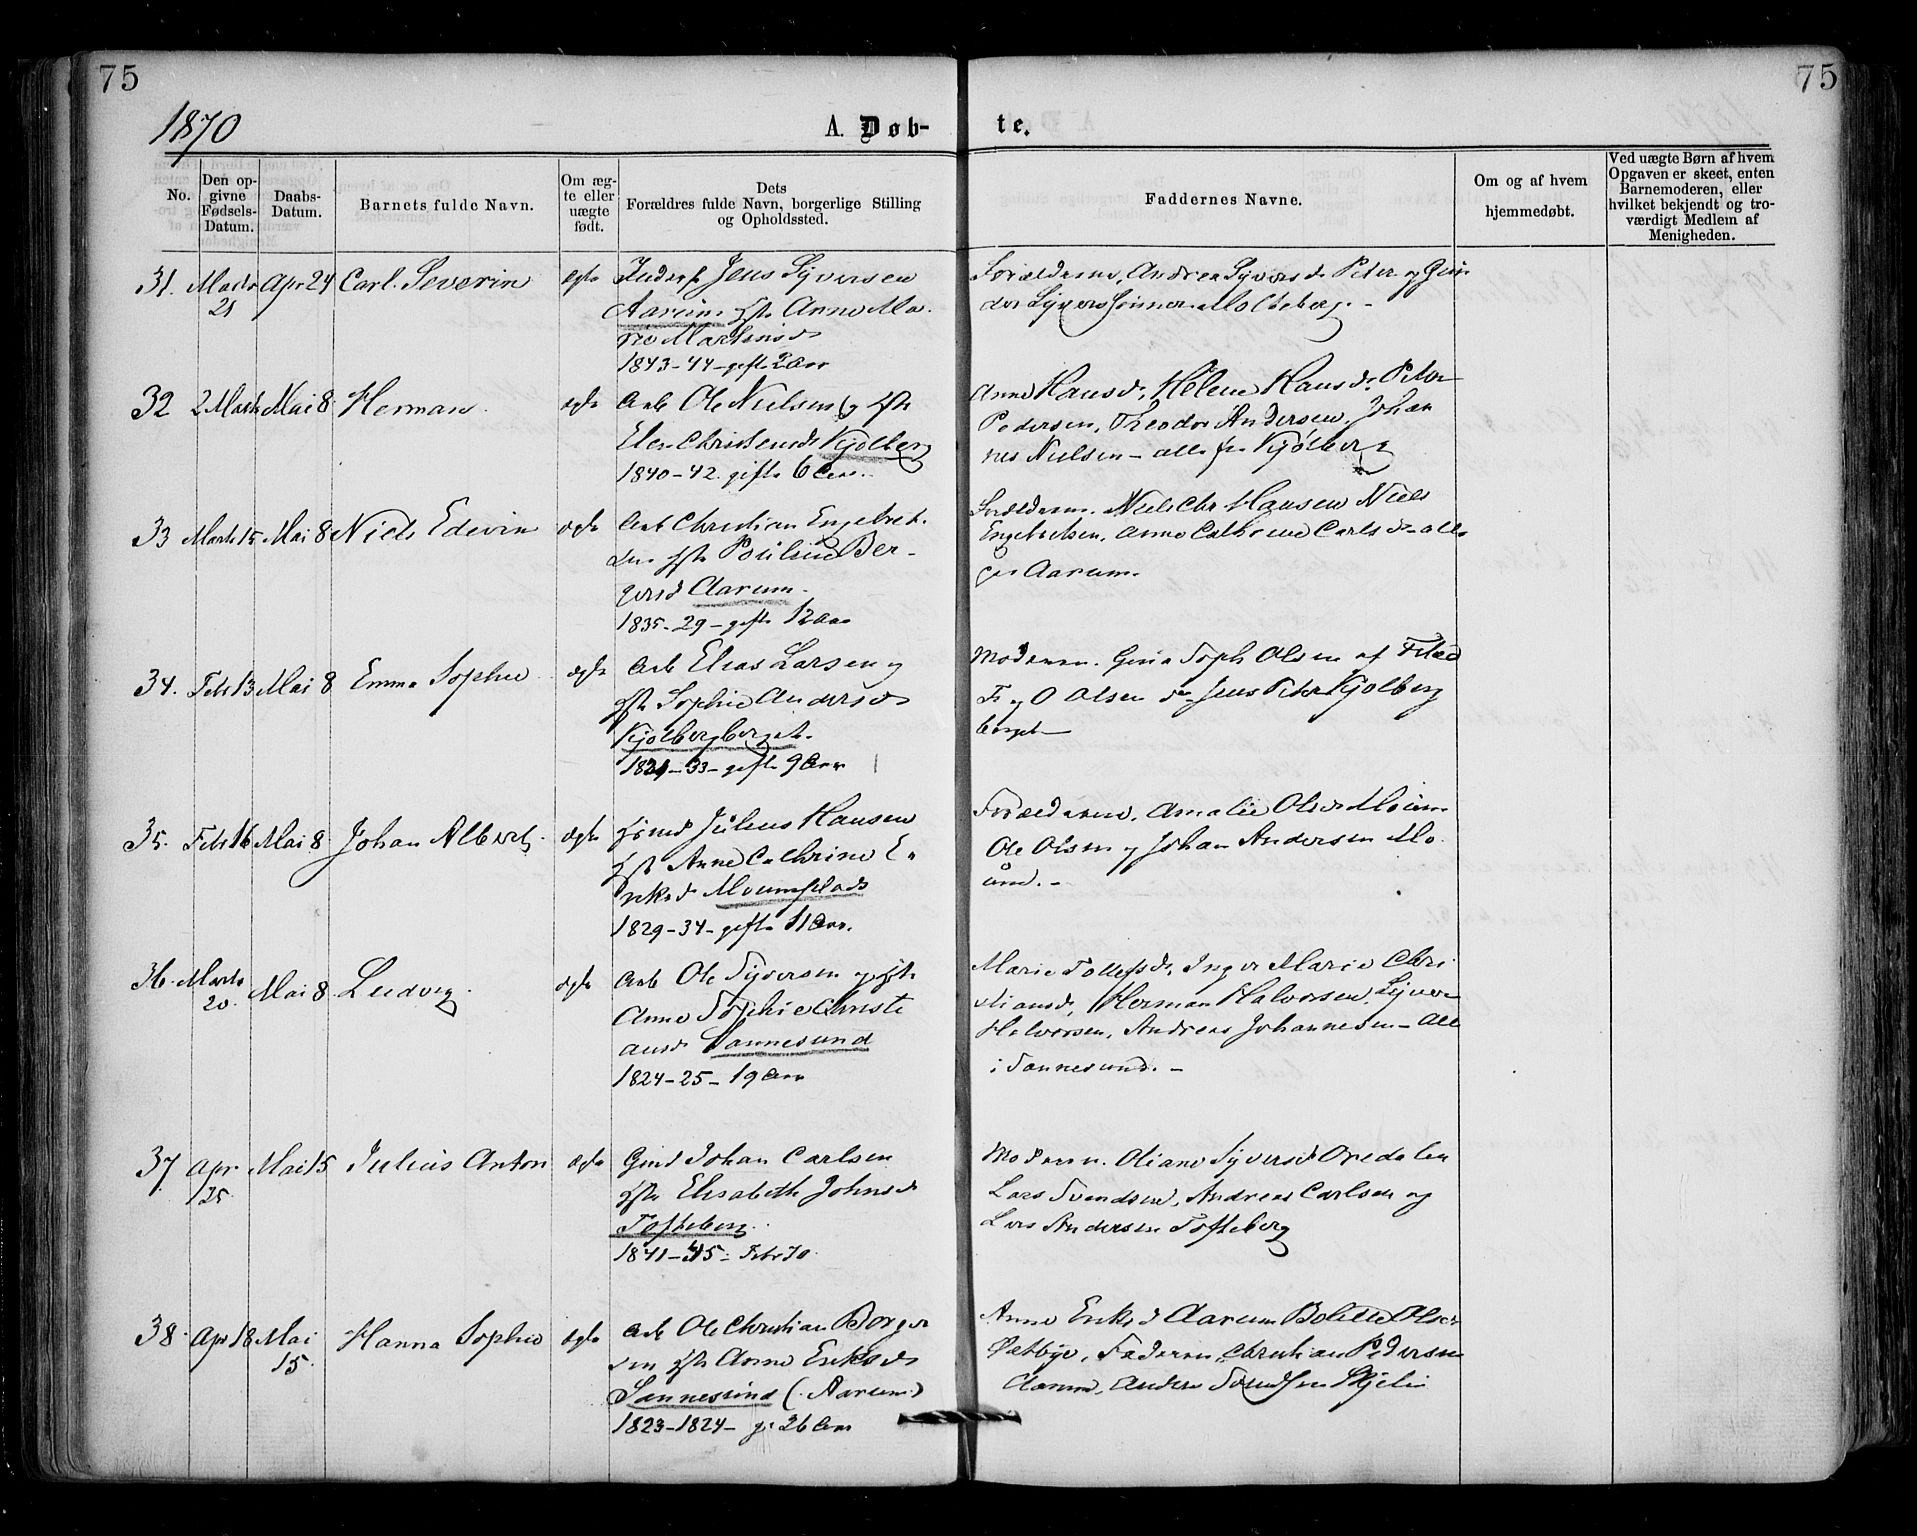 75
75
1870
A. Døb-
te.
No.
Den op-
givne
Fødsels-
Datum.
Daabs-
Datum.
Barnets fulde Navn.
Om æg-
te eller
uægte
født.
Dets
Forældres fulde Navn, borgerlige Stilling
og Opholdssted.
Faddernes Navne.
Om og af hvem
hjemmedøbt.
Ved uægte Børn af hvem
Opgaven er skeet, enten
Barnemoderen, eller
hvilket bekjendt og tro-
værdigt Medlem af
Menigheden.
31. Marts 21 Apr 24 Carl Severin ægte
Jens Syversen
Aarum Anne Ma-
1843-44-gift 2 Aar
Forældrene, Peter og
32 2 Marts Mai 8 Herman ægte
Arb Ole Nielsen og Hstr
Christensd Kjølberg
1840-42 gift 6 Aar.
Anne Hansd, Helene Hansd Peter
Pedersen, Theodor Andersen, Johan
nes Nielsen - alle fra Kjølberg
33 Marts 15 Mai 8 Niels Edevin ægte
Arb Christian Engebret-
sen Hstr Berg-
Aarum.
1835-29-gift 12 Aar
Forældrene. Niels Chr Hansen Niels
Engebretsen, Anne Cathrine Carlsd - alle
Aarum.
34. Febr 13 Mai 8 Emma Sophie ægte
Arb Elias Larsen og
Hstr Sophie Andersd
Kjølbergberget.
-33-gift 9 Aar
Moderen. Soph Olsen af
Olsen Jens Kjølberg
berget
35. Febr 16 Mai 8 Johan Albert ægte
Julius Hansen
Hstr Anne Cathrine E-
riksd Moumplads
1829-34-gift 11 Aar.
Forældrene, Amalie
Ole Olsen og Johan Andersen Mo-
um.-
36. Marts 20. Mai 8 Ludvig ægte
Arb Ole Syversen og Hstr
Anne Sophie Christi
ansd Sannesund
1824-25-19 Aar
Marie Inger Marie Chri-
stiansd, Herman Halvorsen, Syver
Halvorsen, Andreas Johannesen - alle
i Sannesund.-
37 Apr 25 Mai 15 Julius Anton ægte
Johan Carlsen
Hstr Elisabeth Johnsd
Tofteberg
1841-45- Febr 70.
Moderen. Oliane Syversd Opedalen
Lars Svendsen, Andreas Carlsen og
Lars Andersen Tofteberg
38. Apr 18 Mai 15. Hanna Sophie ægte
Arb Ole Christian Borger
sen Hstr Anne Eriksd
Sannesund (Aarum)
1823-1824- g. 26 Aar
Anne Eriksd Aarum Olsen
Faderen, Christian Pedersen
Aarum, Anders